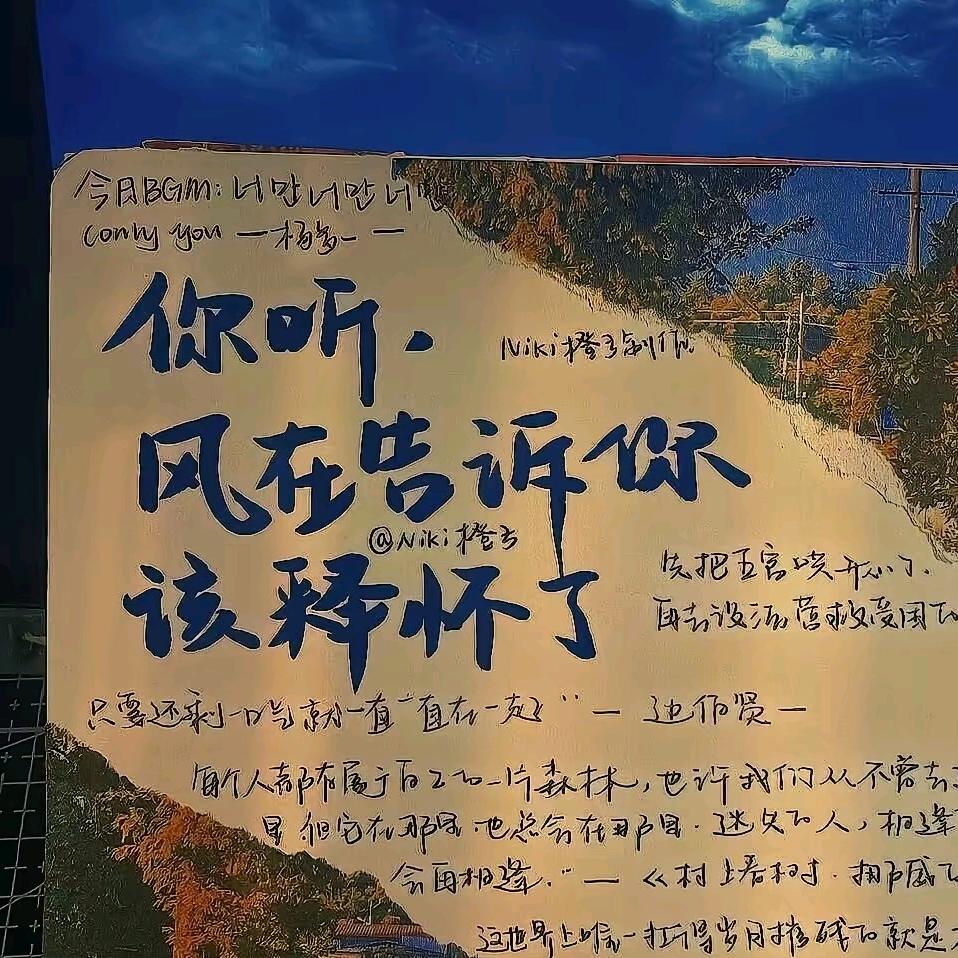 今月BGM: 너만너만너
Conly you 一杨多一 一
你听.
Niki橙子制作
风在告诉你
@Niki橙子
该释怀了
先把五官哄开心了.
再去设法营救受困的
只要还剩一口气就一直一直在一起" — 边伯贤 —
每个人都有属于自己的一片森林，也许我们从不曾去
里 但它在那里.也总会在那里.迷失的人，相逢
会再相逢." — 《村上春树. 挪威的
这世界上唯一扛得岁月摧残的就是